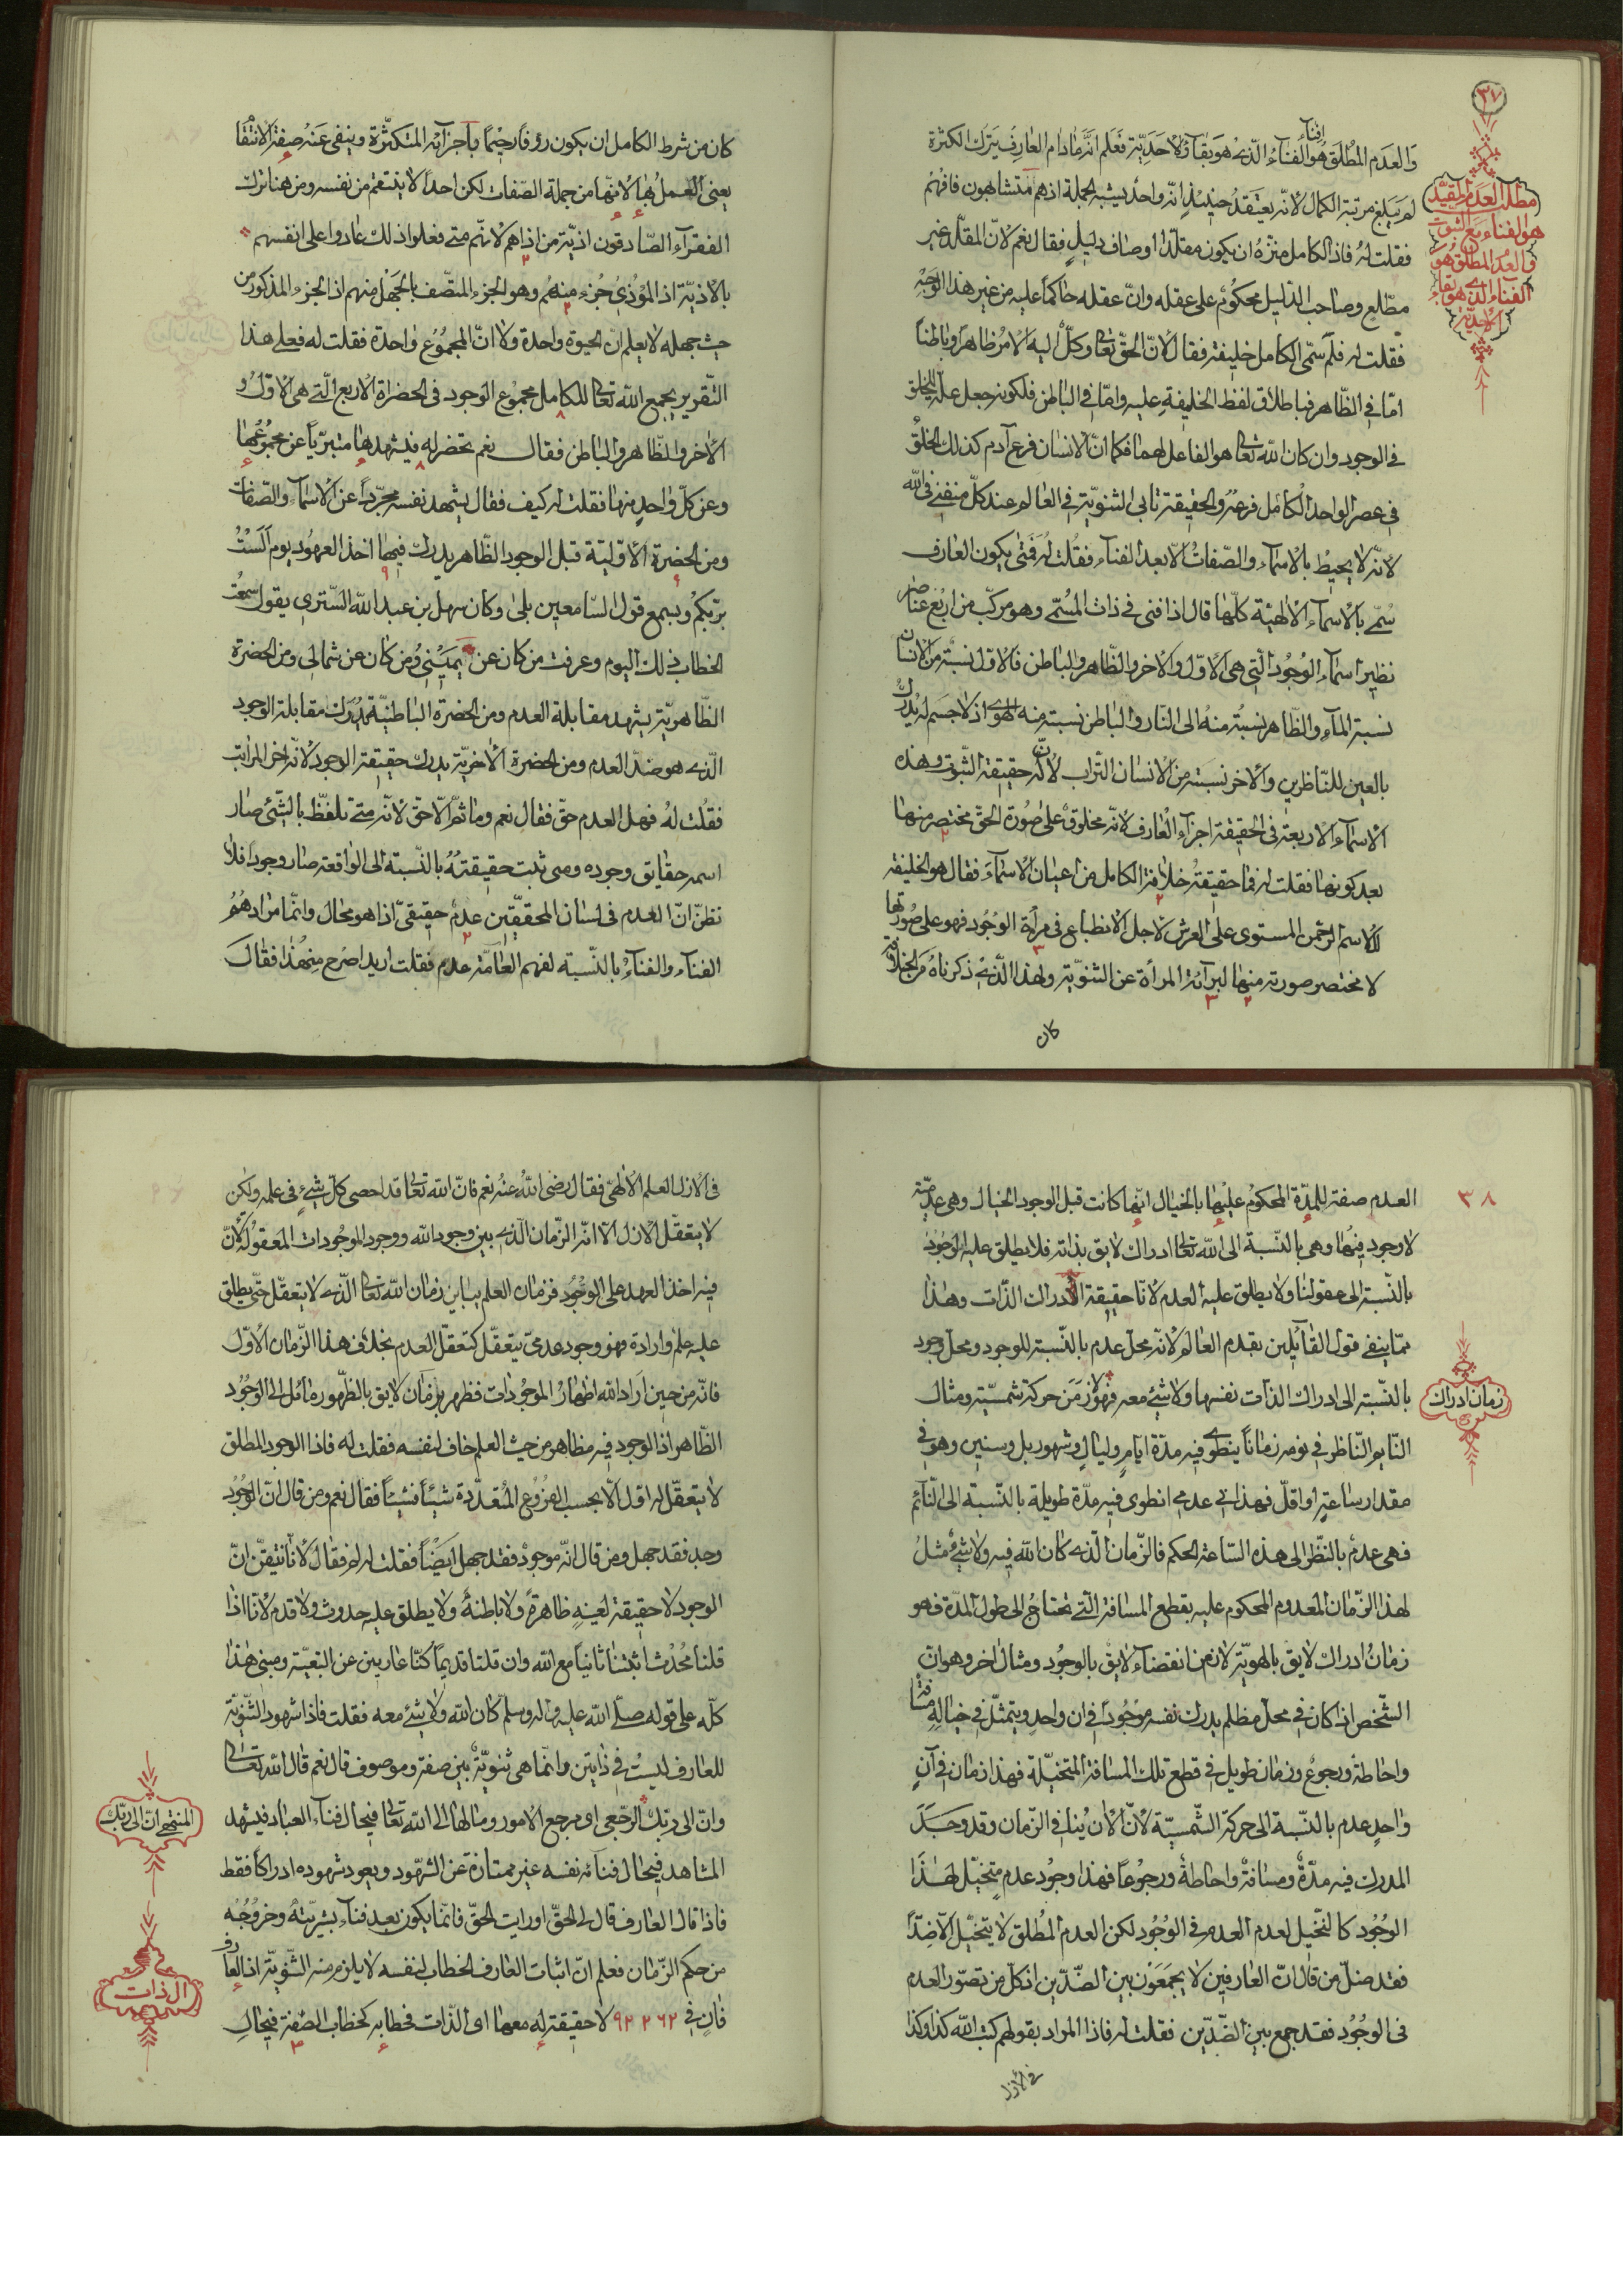 ٣٧
والعدم المطلق هو الفناء الّذى هو بقاء الاحديّة فعلم انّه مادام العارف يترك الكثرة
افناء
مطلب العدم المقيّد
هو الفناء مع الثبوت
والعدم المطلق هو
الفناء الّذى هو بقاء
الاحديّة
لم يبلغ مرتبة الكمال لانّه يعتقد حينئذٍ انّه واحد يشبه الجملة اذ هم متشابهون فافهم
فقلت له فاذ الكامل منزّه ان يكون مقلّداً او صاف دليلٍ فقال نعم لانّ المقلّد غير
مطّلع وصاحب الدّليل محكومٌ على عقله وانّ عقله حاكماً عليه من غير هذا الوجه
فقلت له فلم سمّى الكامل خليفة فقال لانّ الحقّ تعالى وكلّ اليه الامر ظاهراً وباطناً
امّا فى الظّاهر فباطلاق لفظ الخليفة عليه وامّا فى الباطن فلكونه جعل علّة للخلق
فى الوجود وان كان الله تعالى هو الفاعل لهما فكما انّ الانسان فرع آدم كذلك الخلق
فى عصر الواحد الكامل فرعه والحقيقة تابى الثنويّة فى العالم عند كلّ منفنى فى الله
لانّه لا يحيط بالاسماء والصّفات الّا بعد الفناء فقلت له فمتى يكون العارف
سُمّى بالاسماء الالهيّة كلّها قال اذا فنى فى ذات المسمّى وهو مركّب من اربع عناصر
نظير اسماء الوجود الّتى هى الاوّل والاخر والظّاهر والباطن فالاوّل نسبته من الانسان
نسبة الماء والظّاهر نسبته منه الى النّار والباطن نسبته منه الهوى اذ لا جسم له يدرك
بالعين للنّاظرين والاخر نسبته من الانسان التّراب لانّه حقيقة الثّبوت وهذه
الاسماء الاربعة فى الحقيقة اجزاء العارف لانّه مخلوقٌ على صورة الحقّ مختصر منها
بعد كونها فقلت له فما حقيقة خلافة الكامل من اعيان الاسماء فقال هو الخليفة
للاسم الرّحمن المستوى على العرش لاجل الانطباع فى مرآة الوجود فهو على صورتها
لا مختصر صورته منها لبراءة المرأة عن الثنويّة ولهذا الّذى ذكرناه من الخلافة
كان
كان من شرط الكامل ان يكون رؤفاً رحيماً باجزائه المتكثّرة وينفى عنه صفة الانتقا
يعنى العمل بها لانّها من جملة الصّفات لكن احداً لا ينتقم من نفسه ومن هنا ترك
الفقراء الصّادقون اذيّة من اذاهم لانّهم متى فعلوا ذلك عادوا على انفسهم
بالاذيّة اذ المؤذى جزء منهم وهو الجزء المتّصف بالجهل منهم اذ الجزء المذكور من
حيث جهله لا يعلم انّ الحيوة واحدة ولا انّ المجموع واحدة فقلت له فعلى هذا
التّقرير يجمع الله تعالى للكامل مجموع الوجود فى الحضرات الاربع الّتى هى الاوّل و
الاخر والظّاهر والباطن فقال نعم تحضر له فيشهدها متبرّياً عن مجموعها
وعن كلّ واحدٍ منها فقلت له كيف فقال يشهد نفسه مجرّداً عن الاسماء والصّفات
ومن الحضرة الاوّليّة قبل الوجود الظّاهر يدرك فيها اخذ العهود يوم الست
بربّكم ويسمع قول السّامعين بلى وكان سهل بن عبد الله التّسترى يقول سمعت
الخطاب ذلك اليوم وعرفت من كان عن يمينى ومن كان عن شمالى ومن الحضرة
الظّاهريّة يشهد مقابلة العدم ومن الحضرة الباطنيّة يدرك مقابلة الوجود
الّذى هو ضدّ العدم ومن الحضرة الاخريّة يدرك حقيقة الوجود لانّه اخر المراتب
فقلت له فهل العدم حقّ فقال نعم وما ثمّ الّا حقّ لانّه متى تلفّظ بالشّئ صار
اسمه حقايق وجوده ومتى ثبت حقيقته بالنّسبة الى الواقعة صار وجودا فلا
تظنّ انّ العدم فى لسان المحقّقين عدم حقيقىّ اذا هو محال وانّما مرادهم
الفناء والفناء بالنّسبة لفهم العامّة عدم فقلت اريد اصرح من هذا فقال
٣٨
العدم صفة للمدّة المحكوم عليها بالخيال انّها كانت قبل الوجود الخيال وهى عدميّة
لا وجود فيها وهى بالنّسبة الى الله تعالى ادراك لايق بذاته فلا يطلق عليه الوجود
بالنّسبة الى عقولنا ولا يطلق عليه العدم لانّا حقيقة ادراك الذّات وهذا
ممّا ينفى قول القائلين بقدم العالم لانّه محلّ عدم بالنّسبة للوجود ومحلّ وجود
بالنّسبة الى ادراك الذات نفسها ولا شئ معه فهو لا زمن حركة شمسيّة ومثال
زمان ادراك
النّايم النّاظر فى نومه زماناً ينطوى فيه مدّة ايّامٍ وليالٍ وشهور بل وسنين وهو فى
مقدار ساعةٍ او اقلّ فهذا شئ عدمى انطوى فيه مدّة طويلة بالنّسبة الى النّائم
فهى عدمٌ بالنّظر الى هذه السّاعة الحكم فالزّمان الّذى كان الله فيه ولا شئ مثل
لهذا الزّمان المعدوم المحكوم عليه بقطع المسافة الّتى تحتاج الى طول المدّة فهو
زمان ادراك لايق بالهويّة لا زمن انقضاء لايق بالوجود ومثال اخر وهو انّ
الشّخص اذ كان فى محلّ مظلم يدرك نفسه موجوداً فى ان واحدٍ ويتمثّل فى خياله مسافة
واحاطة ورجوع وزمان طويل فى قطع تلك المسافة المتخيّلة فهذا زمان فى آنٍ
واحدٍ عدم بالنّسبة الى حركة الشّمسيّة لانّ الان ينافى الزّمان وقد وجد
المدرك فيه مدّة ومسافة واحاطة ورجوعاً فهذا وجود عدم متخيّل لهذا
الوجود كالتّخيل لعدم العدم فى الوجود لكن العدم المطلق لا يتخيّل الّا ضدّاً
فقد ضلّ من قال انّ العارفين لا يجمعون بين الضّدّين اذ كلّ من تصوّر العدم
فى الوجود فقد جمع بين الضّدّين فقلت له فاذا المراد بقولهم كتب الله كذا وكذا
فى الازل
فى الازل العلم الالهىّ فقال رضى الله عنه نعم فانّ الله تعالى قد احصى كلّ شئ فى علمه ولكن
لا يتعقّل الازل الّا انّه الزّمان الّذى بين وجود الله ووجود الموجودات المعقولة لانّ
فيه اخذ العهد على الوجود فزمان العلم يباين زمان الله تعالى الّذى لا يتعقّل حتّى يطلق
عليه علم وارادة فهو وجود عدمىّ يتعقّل كتعقّل العدم بخلاف هذا الزّمان الاوّل
فانّه من حين اراد الله اظهار الموجودات فظهر بزمان لايق بالظّهور مائل الى الوجود
الظّاهر اذ الوجود فيه مظاهر من حيث العلم خاف لنفسه فقلت له فاذا الوجود المطلق
لا يتعقّل له اوّل الّا بحسب الفروع المتعدّدة شيئاً فشيئاً فقال نعم ومن قال انّ الوجود
وجد فقد جهل ومن قال انّه موجود فقد جهل ايضاً فقلت له لم فقال لانّا نتيقّن انّ
الوجود لا حقيقة لعينه ظاهرةً ولا باطنةً ولا يطلق عليه حدوث ولا قدم لانّا اذا
قلنا محدث اثبتنا ثانياً مع الله وان قلنا قديماً كنّا عاريين عن التبعيّة ومبنى هذا
كلّه على قوله صلّى الله عليه واله وسلم كان الله ولا شئ معه فقلت فاذا شهود الثّنويّة
للعارف ليست فى ذاتين وانّما هى ثنويّة بين صفة وموصوف قال نعم قال الله تعالى
وانّ الى ربّك الرّجعى اى مرجع الامور ومالها الى الله تعالى فيحال فناء العباد فيشهد
المنتهى انّ الى ربّك
المشاهد فى حال فنائه نفسه غير ممتازة عن الشّهود ويعود شهوده ادراكاً فقط
فاذا قال العارف قال لى الحقّ او رايت الحقّ فانّما يكون بعد فناء بشريّته وخروجه
من حكم الزّمان فعلم انّ اثبات العارف الخطاب لنفسه لا يلزم منه الثّنويّة اذ العارف
الذات
فان فى ٦٢ ٢ ٩٢ لا حقيقة له معها اى الذّات فخطابه كخطاب الصّفة فى حال